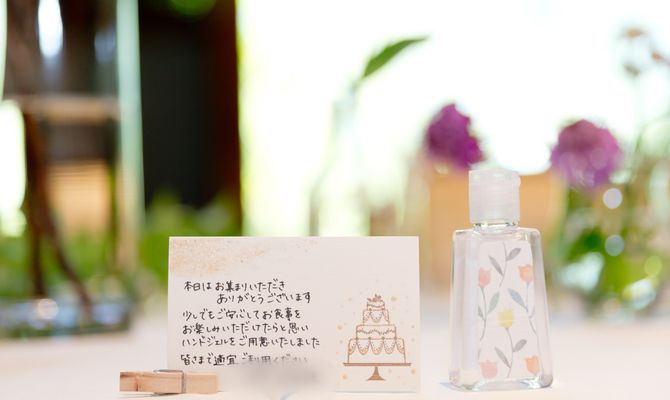 本日はお集まりいただき
ありがとうございます
少しでもご安心してお食事を
お楽しみいただけたらと思い
ハンドジェルをご用意いたしました
皆さまで適宜ご利用ください